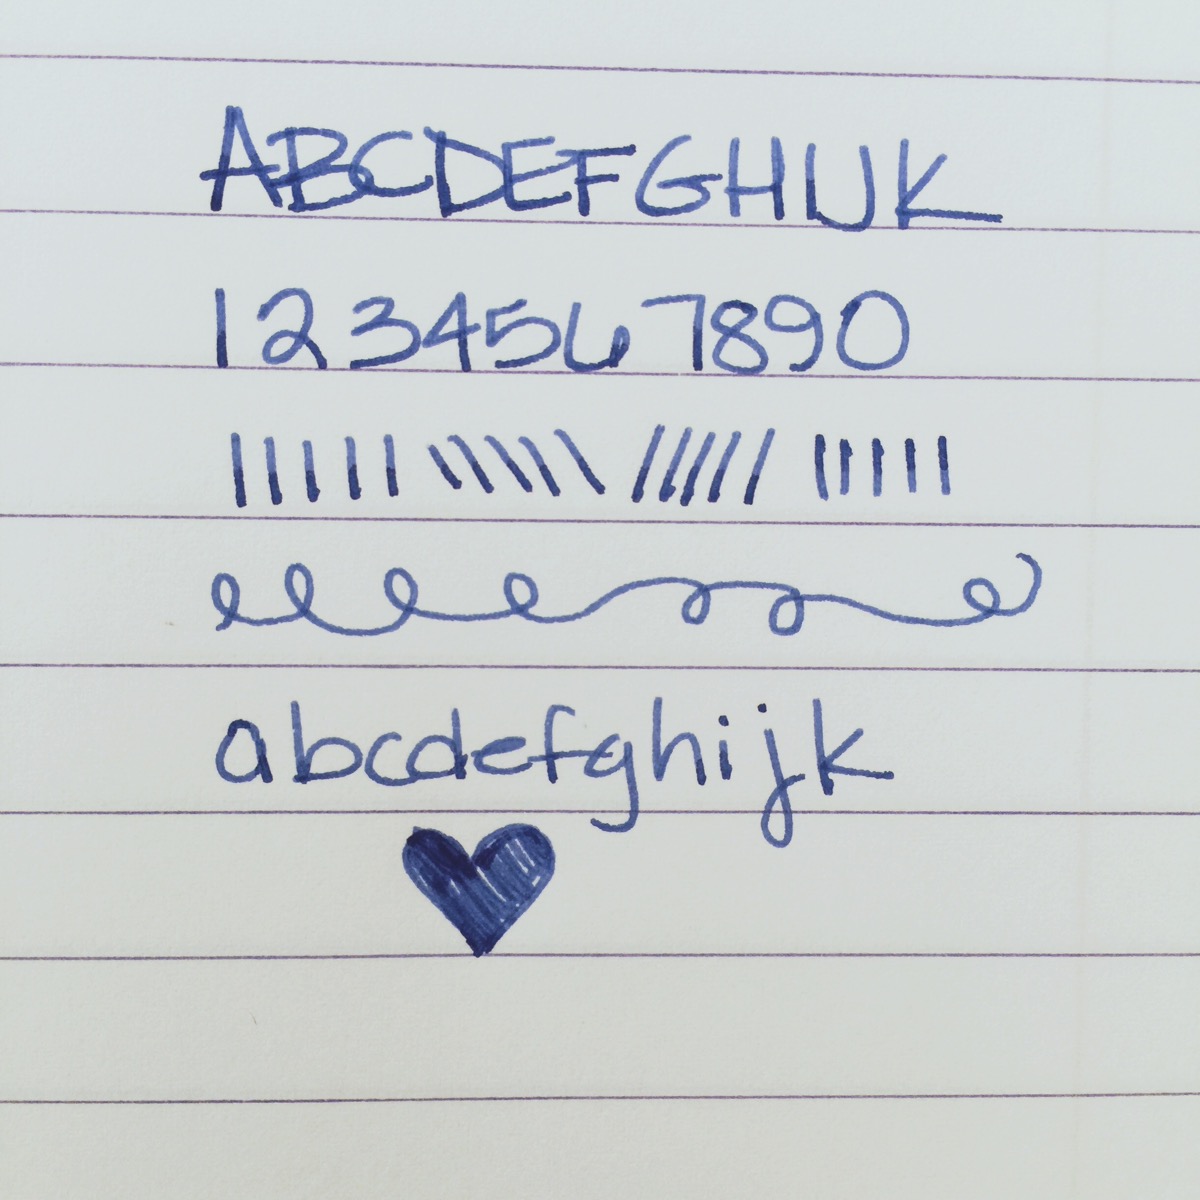 ABCDEFGHIJK
1234567890
abcdefghijk